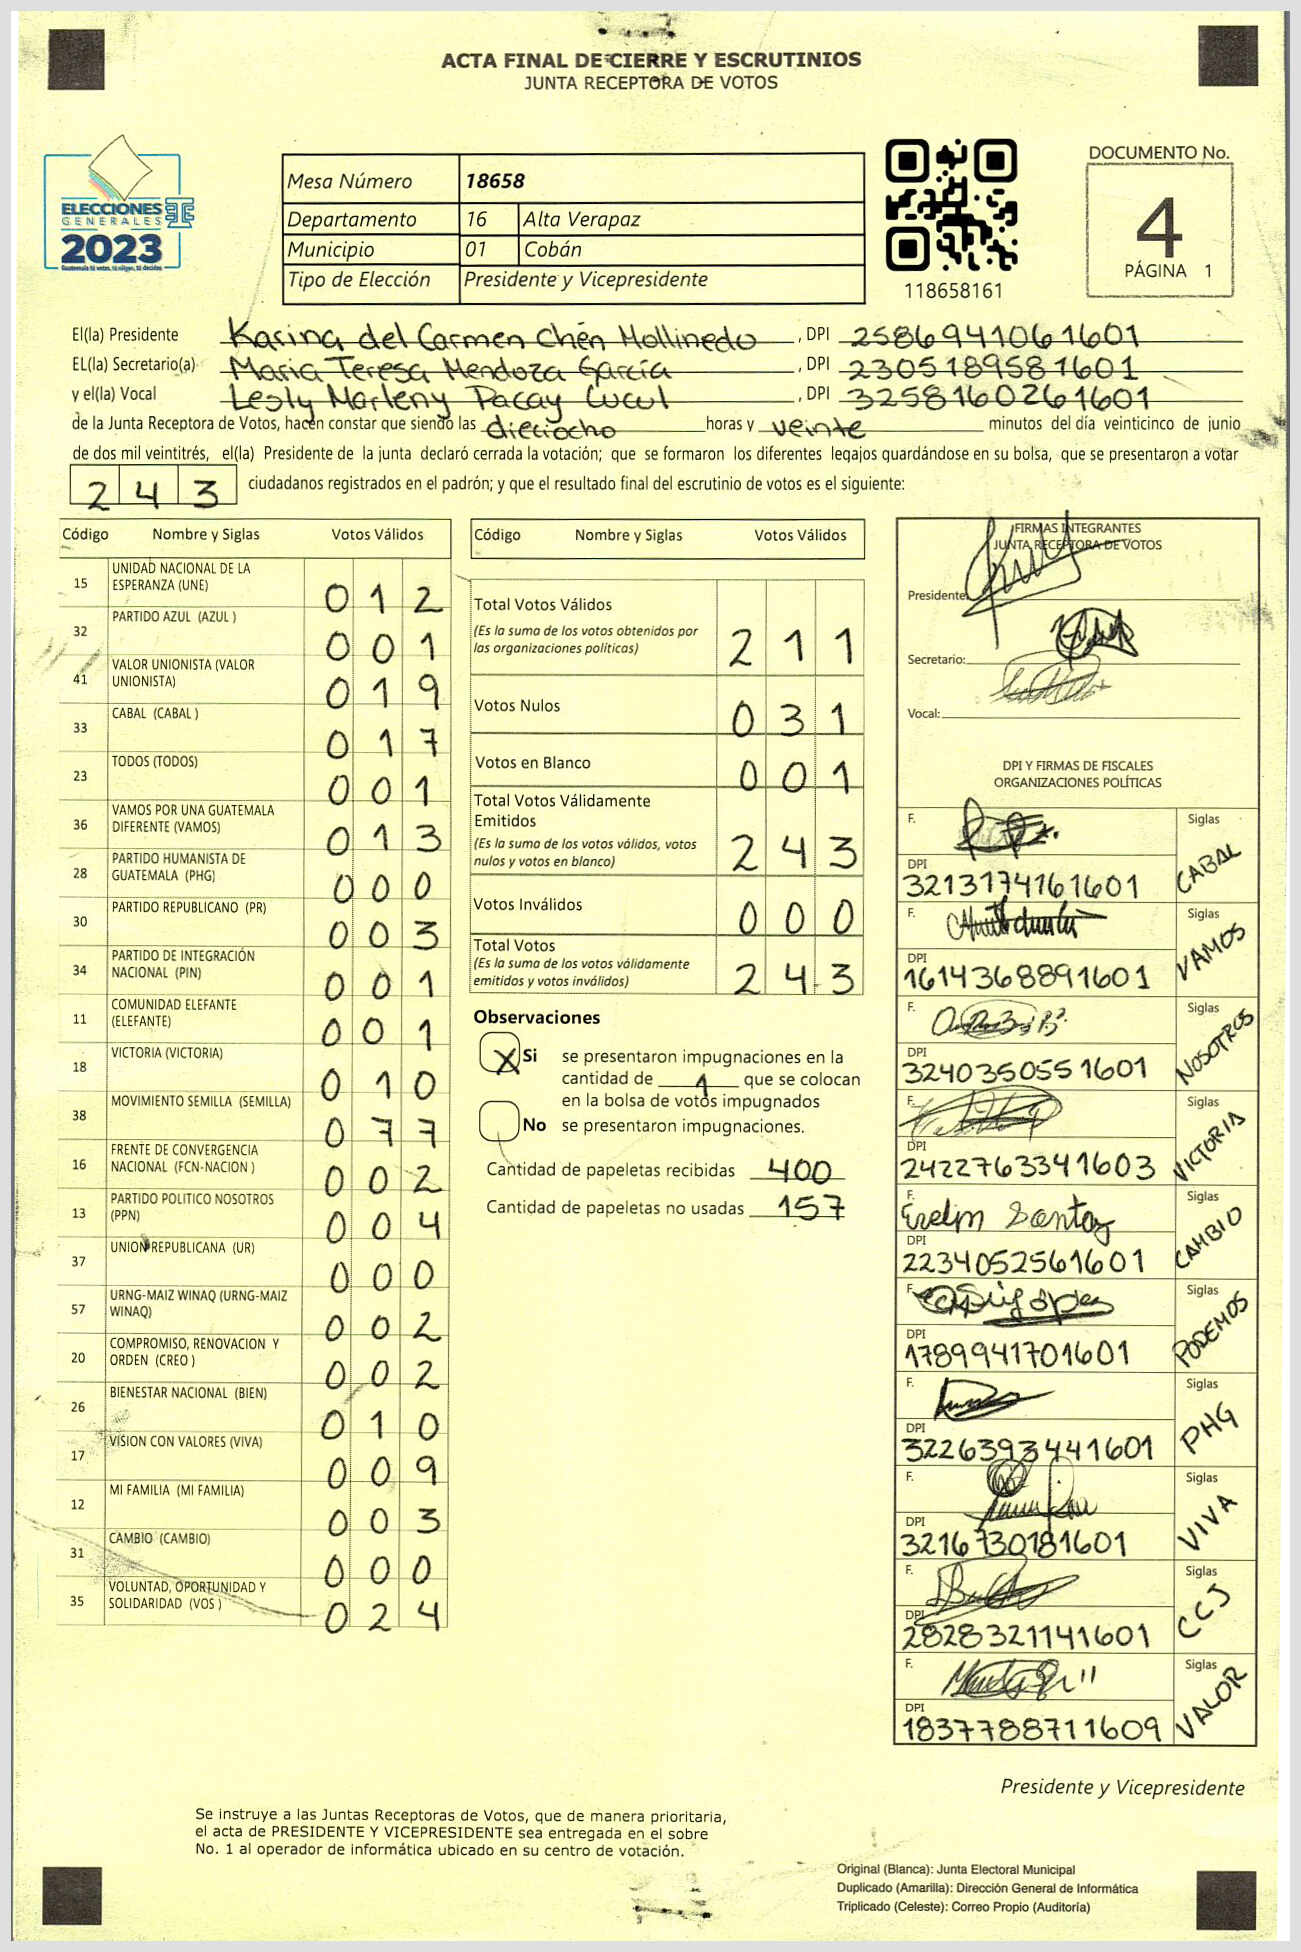 ACTA FINAL DE CIERRE Y ESCRUTINIOS
JUNTA RECEPTORA DE VOTOS
ELECCIONES
GENERALES
2023
Mesa Número 18658
Departamento 16 Alta Verapaz
Municipio 01 Cobán
Tipo de Elección Presidente y Vicepresidente
118658161
DOCUMENTO No.
4
PÁGINA 1
El(la) Presidente Karina del Carmen Chén Mollinedo, DPI 2586941061601
EL(la) Secretario(a) Maria Teresa Mendoza García, DPI 2305189581601
y el(la) Vocal Lesly Marleny Pacay Cucul, DPI 3258160261601
de la Junta Receptora de Votos, hacen constar que siendo las dieciocho horas y veinte minutos del día veinticinco de junio
de dos mil veintitrés, el(la) Presidente de la junta declaró cerrada la votación; que se formaron los diferentes legajos guardándose en su bolsa, que se presentaron a votar
243 ciudadanos registrados en el padrón; y que el resultado final del escrutinio de votos es el siguiente:
Código Nombre y Siglas Votos Válidos
15 UNIDAD NACIONAL DE LA
ESPERANZA (UNE) 012
32 PARTIDO AZUL (AZUL ) 001
41 VALOR UNIONISTA (VALOR
UNIONISTA) 019
33 CABAL (CABAL ) 017
23 TODOS (TODOS) 001
36 VAMOS POR UNA GUATEMALA
DIFERENTE (VAMOS) 013
28 PARTIDO HUMANISTA DE
GUATEMALA (PHG) 000
30 PARTIDO REPUBLICANO (PR) 003
34 PARTIDO DE INTEGRACIÓN
NACIONAL (PIN) 001
11 COMUNIDAD ELEFANTE
(ELEFANTE) 001
18 VICTORIA (VICTORIA) 010
38 MOVIMIENTO SEMILLA (SEMILLA) 077
16 FRENTE DE CONVERGENCIA
NACIONAL (FCN-NACION ) 002
13 PARTIDO POLITICO NOSOTROS
(PPN) 004
37 UNION REPUBLICANA (UR) 000
57 URNG-MAIZ WINAQ (URNG-MAIZ
WINAQ) 002
20 COMPROMISO, RENOVACION Y
ORDEN (CREO ) 002
26 BIENESTAR NACIONAL (BIEN) 010
17 VISION CON VALORES (VIVA) 009
12 MI FAMILIA (MI FAMILIA) 003
31 CAMBIO (CAMBIO) 000
35 VOLUNTAD, OPORTUNIDAD Y
SOLIDARIDAD (VOS ) 024
Código Nombre y Siglas Votos Válidos
Total Votos Válidos
(Es la suma de los votos obtenidos por
las organizaciones políticas) 211
Votos Nulos 031
Votos en Blanco 001
Total Votos Válidamente
Emitidos
(Es la suma de los votos válidos, votos
nulos y votos en blanco) 243
Votos Inválidos 000
Total Votos
(Es la suma de los votos válidamente
emitidos y votos inválidos) 243
Observaciones
X Si se presentaron impugnaciones en la
cantidad de 1 que se colocan
en la bolsa de votos impugnados
No se presentaron impugnaciones.
Cantidad de papeletas recibidas 400
Cantidad de papeletas no usadas 157
FIRMAS INTEGRANTES
JUNTA RECEPTORA DE VOTOS
Presidente:
Secretario:
Vocal:
DPI Y FIRMAS DE FISCALES
ORGANIZACIONES POLÍTICAS
F. Siglas CABAL
DPI
3213174161601
F. Siglas VAMOS
DPI
1614368891601
F. Siglas NOSOTROS
DPI
3240350551601
F. Siglas VICTORIA
DPI
2422763341603
F. Evelin Santos Siglas CAMBIO
DPI
2234052561601
F. Siglas PODEMOS
DPI
1789941701601
F. Siglas PHG
DPI
3226393441601
F. Siglas VIVA
DPI
3216730181601
F. Siglas CCJ
DPI
2828321141601
F. Siglas VALOR
DPI
1837788711609
Presidente y Vicepresidente
Se instruye a las Juntas Receptoras de Votos, que de manera prioritaria,
el acta de PRESIDENTE Y VICEPRESIDENTE sea entregada en el sobre
No. 1 al operador de informática ubicado en su centro de votación.
Original (Blanca): Junta Electoral Municipal
Duplicado (Amarilla): Dirección General de Informática
Triplicado (Celeste): Correo Propio (Auditoría)